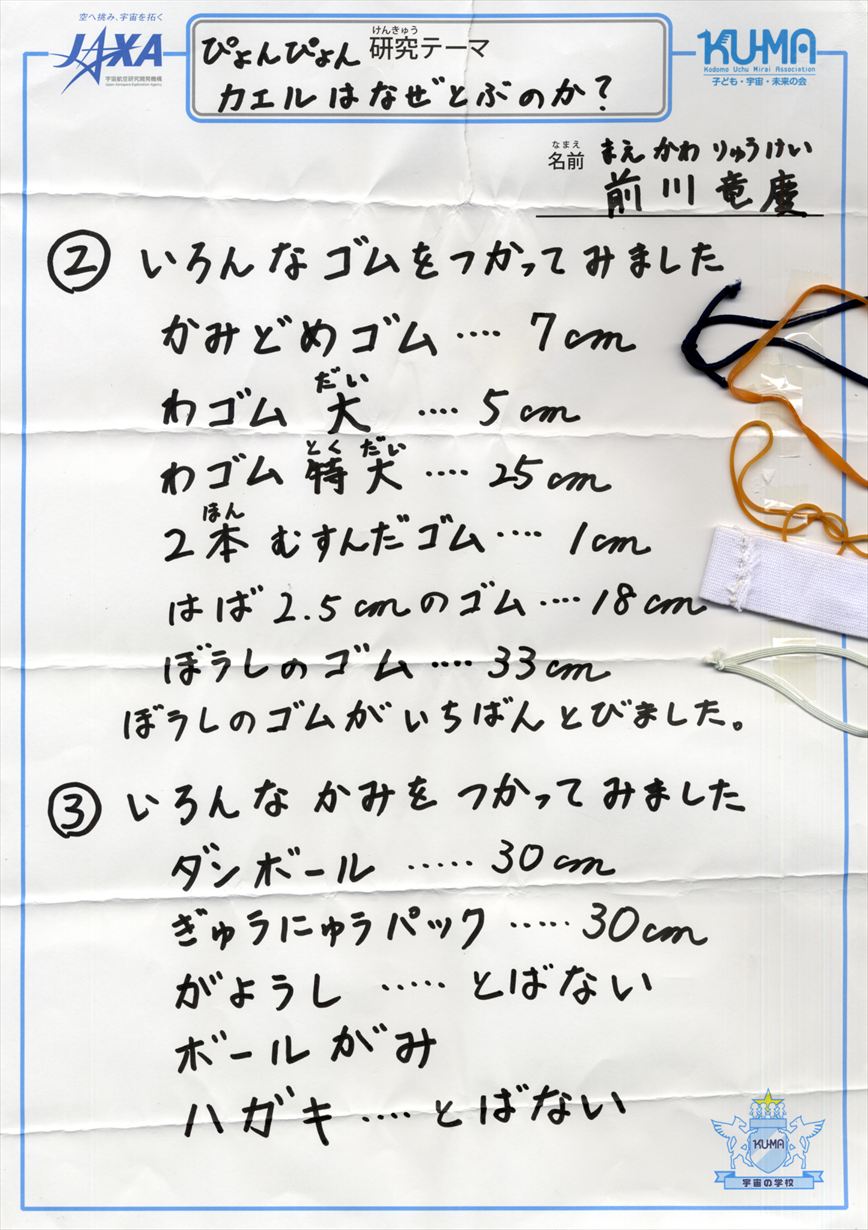 空へ挑み、宇宙を拓く
JAXA
宇宙航空研究開発機構
Japan Aerospace Exploration Agency
けんきゅう
研究テーマ
ぴょんぴょん
カエルはなぜとぶのか?
KU-MA
Kodomo Uchu Mirai Association
子ども・宇宙・未来の会
なまえ
名前
まえかわ りゅうけい
前川竜慶
② いろんなゴムをつかってみました
かみどめゴム‥‥ 7cm
だい
わゴム 大 ‥‥ 5cm
とくだい
わゴム 特大 ‥‥ 25cm
ほん
2本むすんだゴム‥‥ 1cm
はば2.5cmのゴム‥‥18cm
ぼうしのゴム‥‥33cm
ぼうしのゴムがいちばんとびました。
③ いろんなかみをつかってみました
ダンボール ‥‥・ 30cm
ぎゅうにゅうパック ‥‥・30cm
がようし ‥‥・ とばない
ボールがみ
ハガキ ‥‥ とばない
KU-MA
宇宙の学校